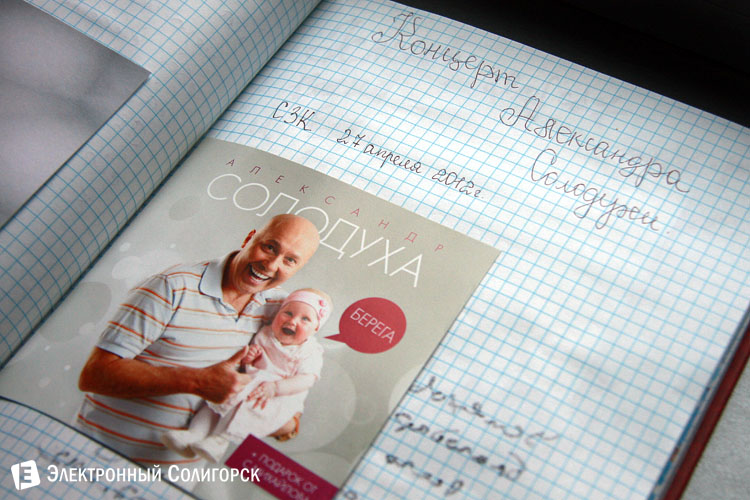 Концерт
Александра
Солодухи.
СЗК 27 апреля 2012г.
АЛЕКСАНДР
СОЛОДУХА
БЕРЕГА
+ ПОДАРОК ОТ
Электронный Солигорск